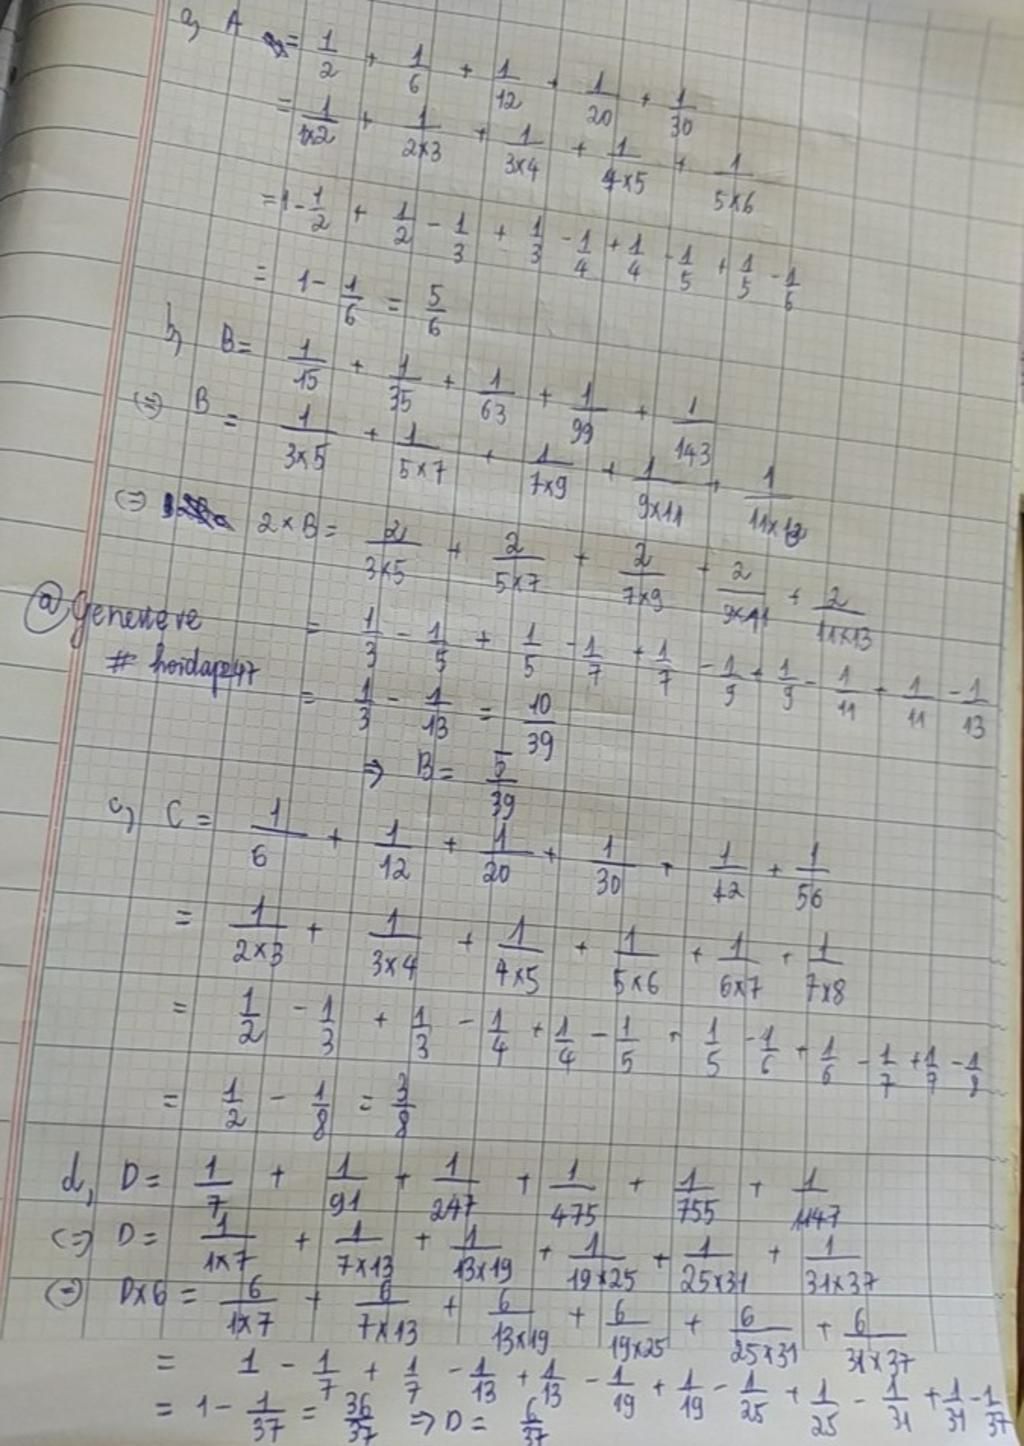 a, A = 1/2 + 1/6 + 1/12 + 1/20 + 1/30
= 1/1×2 + 1/2×3 + 1/3×4 + 1/4×5 + 1/5×6
= 1 - 1/2 + 1/2 - 1/3 + 1/3 - 1/4 + 1/4 - 1/5 + 1/5 - 1/6
= 1 - 1/6 = 5/6
b, B = 1/15 + 1/35 + 1/63 + 1/99 + 1/143
(=) B = 1/3×5 + 1/5×7 + 1/7×9 + 1/9×11 + 1/11×13
(=) 2×B = 2/3×5 + 2/5×7 + 2/7×9 + 2/9×11 + 2/11×13
@Genevieve
= 1/3 - 1/5 + 1/5 - 1/7 + 1/7 - 1/9 + 1/9 - 1/11 + 1/11 - 1/13
# hoidap247
= 1/3 - 1/13 = 10/39
=> B = 5/39
c, C = 1/6 + 1/12 + 1/20 + 1/30 + 1/42 + 1/56
= 1/2×3 + 1/3×4 + 1/4×5 + 1/5×6 + 1/6×7 + 1/7×8
= 1/2 - 1/3 + 1/3 - 1/4 + 1/4 - 1/5 + 1/5 - 1/6 + 1/6 - 1/7 + 1/7 - 1/8
= 1/2 - 1/8 = 3/8
d, D = 1/7 + 1/91 + 1/247 + 1/475 + 1/755 + 1/1147
<=> D = 1/1×7 + 1/7×13 + 1/13×19 + 1/19×25 + 1/25×31 + 1/31×37
(=) D×6 = 6/1×7 + 6/7×13 + 6/13×19 + 6/19×25 + 6/25×31 + 6/31×37
= 1 - 1/7 + 1/7 - 1/13 + 1/13 - 1/19 + 1/19 - 1/25 + 1/25 - 1/31 + 1/31 - 1/37
= 1 - 1/37 = 36/37 => D = 6/37